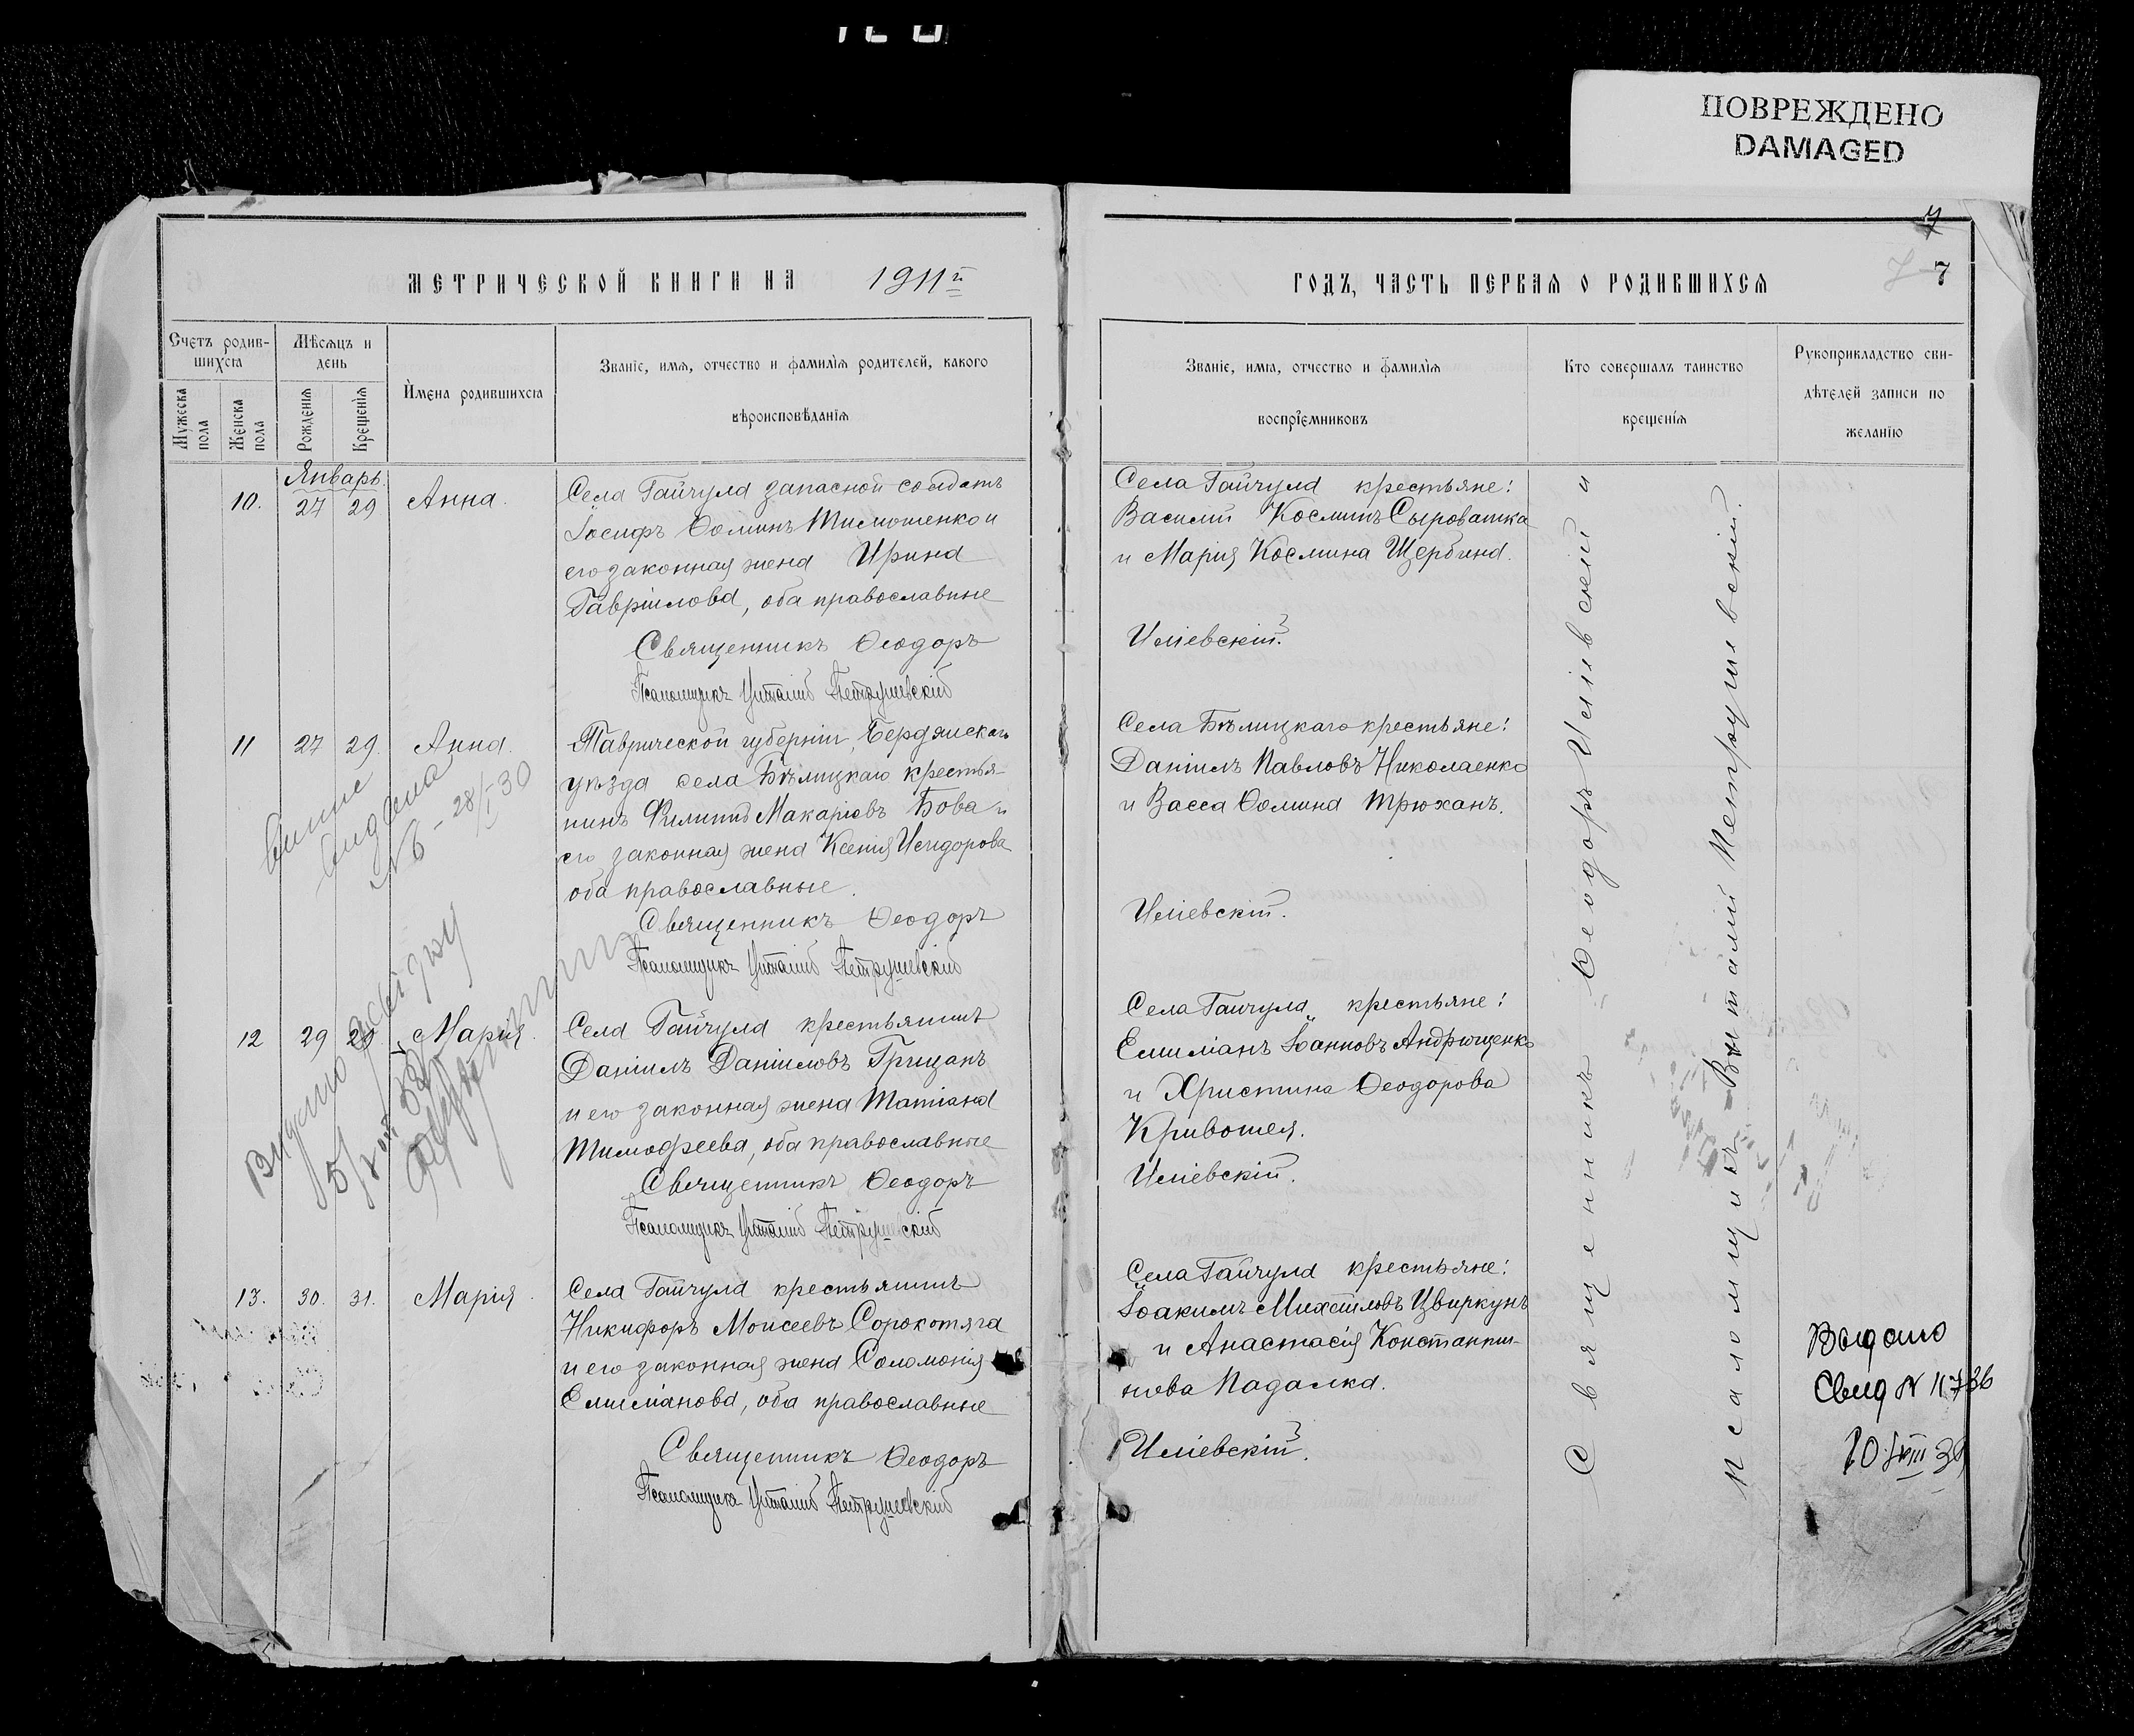 ПОВРЕЖДЕНО
DAMAGED
7
7
МЕТРИЧЕСКОЙ КНИГИ НА 1911й
ГОДЪ, ЧАСТЬ ПЕРВАЯ О РОДИВШИХСЯ
Счетъ родив-
шихся
Мѣсяцъ и
день
Мужеска
пола
Женска
пола
Рожденія
Крещенія
Имена родившихся
Званіе, имя, отчество и фамилія родителей, какого
вѣроисповѣданія
Званіе, имя, отчество и фамилія
воспріемниковъ
Кто совершалъ таинство
крещенія
Рукоприкладство сви-
дѣтелей записи по
желанію
Январь.
10. 27 29 Анна.
Села Гайчула запасной солдатъ
Іосифъ Ѳоминъ Тимошенко и
его законная жена Ирина
Гавріилова, оба православные
Священникъ Ѳеодоръ
Псаломщикъ Виталій Петрушевскій
Села Гайчула крестьяне:
Василій Косминъ Сыроватка
и Марія Космина Щербина.
Иліевскій.
11 27 29. Анна.
Таврической губерніи, Бердянскаго
уѣзда села Бѣлицкаго крестья-
нинъ Филиппъ Макаріовъ Бова и
его законная жена Ксенія Исидорова
оба православные.
Священникъ Ѳеодоръ
Псаломщикъ Виталій Петрушевскій
Села Бѣлицкаго крестьяне:
Даніилъ Павловъ Николаенко
и Васса Ѳомина Трюханъ.
Иліевскій.
№ 6 - 28/I 30
12 29 29 Марія.
Села Гайчула крестьянинъ
Даніилъ Даніиловъ Грицанъ
и его законная жена Татіана
Тимофеева, оба православные
Священникъ Ѳеодоръ
Псаломщикъ Виталій Петрушевскій
Села Гайчула крестьяне:
Емиліанъ Іоанновъ Андрющенко
и Христина Ѳеодорова
Кривошея.
Иліевскій.
Видано
13. 30. 31. Марія.
Села Гайчула крестьянинъ
Никифоръ Моисеевъ Сорокотяга
и его законная жена Соломонія
Емиліанова, оба православные
Священникъ Ѳеодоръ
Псаломщикъ Виталій Петрушевскій
Села Гайчула крестьяне:
Іоакимъ Михаиловъ Цвиркунъ
и Анастасія Константи-
нова Падалка.
Иліевскій.
Священникъ Ѳеодоръ Иліевскій и
Псаломщикъ Виталій Петрушевскій.
Видано
Свид №